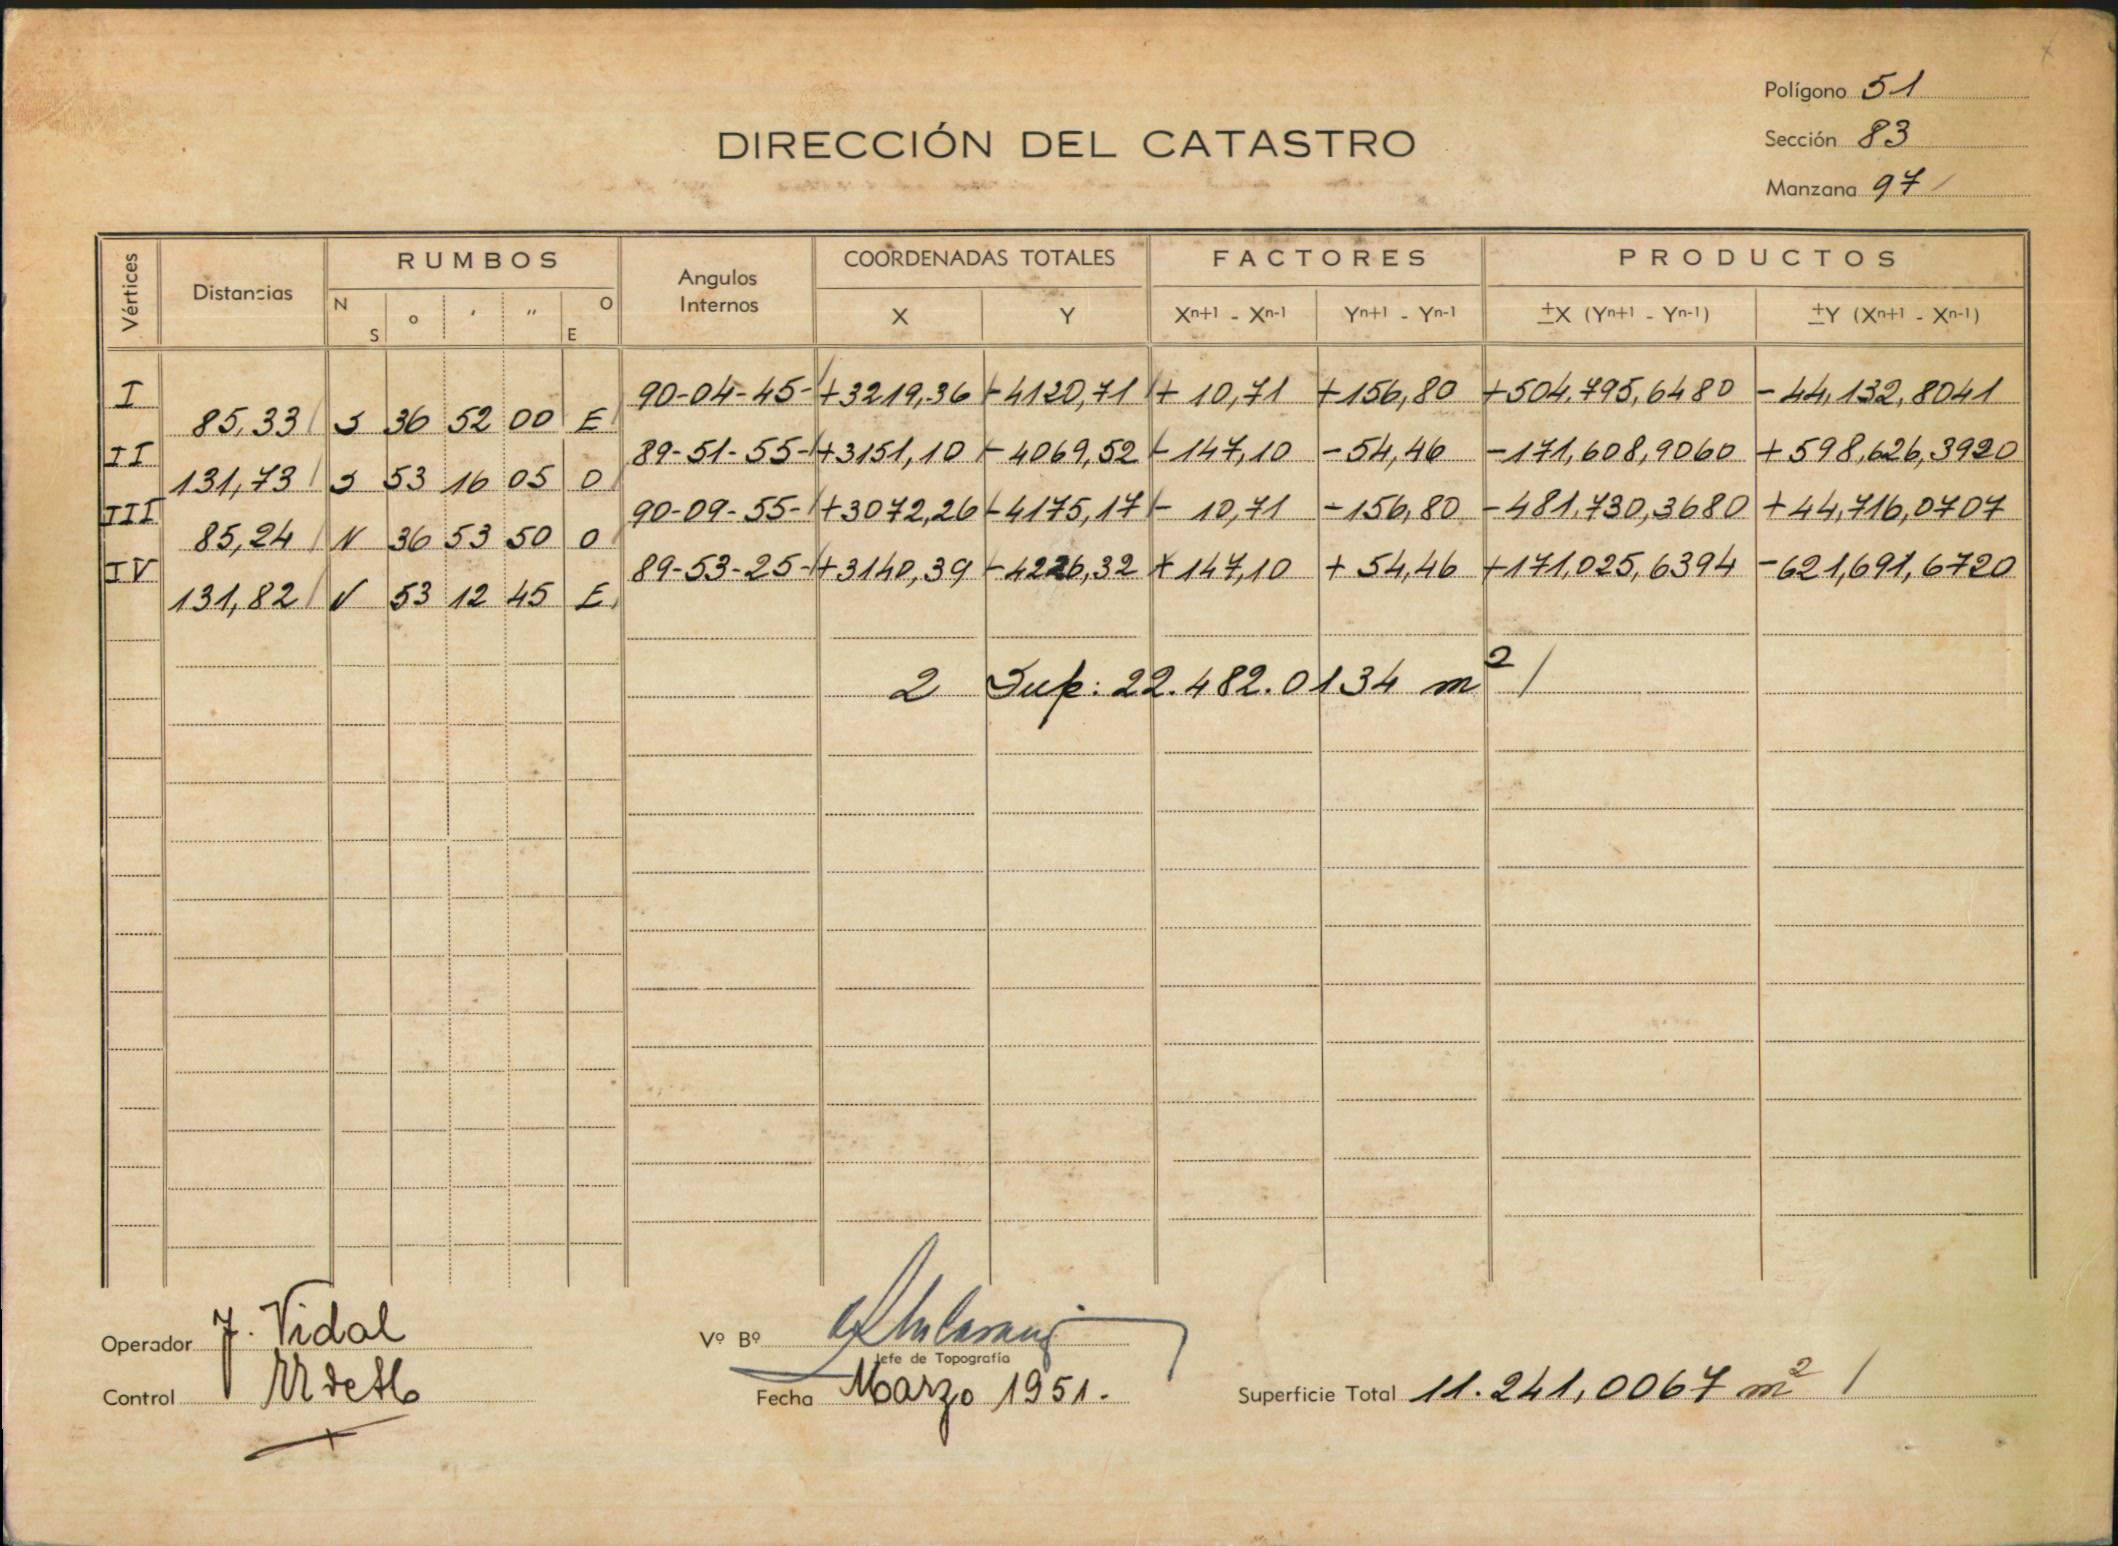 Polígono 51
DIRECCIÓN DEL CATASTRO
Sección 83
Manzana 97
Vértices Distancias RUMBOS Angulos Internos COORDENADAS TOTALES FACTORES PRODUCTOS
N S ° ' " O E X Y Xn+1 - Xn-1 Yn+1 - Yn-1 ±X (Yn+1 - Yn-1) ±Y (Xn+1 - Xn-1)
I 90-04-45- +3219,36 -4120,71 + 10,71 +156,80 +504.795,6480 -44.132,8041
85,33 S 36 52 00 E
II 89-51-55- +3151,10 -4069,52 -147,10 -54,46 -171,608,9060 +598,626,3920
131,73 S 53 16 05 O
III 90-09-55- +3072,26 -4175,17 - 10,71 -156,80 -481.730,3680 +44,716,0707
85,24 N 36 53 50 O
IV 89-53-25- +3140,39 -4226,32 +147,10 + 54,46 +171,025,6394 -621,691,6720
131,82 N 53 12 45 E
2 Sup: 22.482.0134 m2
Operador J. Vidal Vº Bº
Jefe de Topografía
Control Fecha Marzo 1951. Superficie Total 11.241,0067 m2